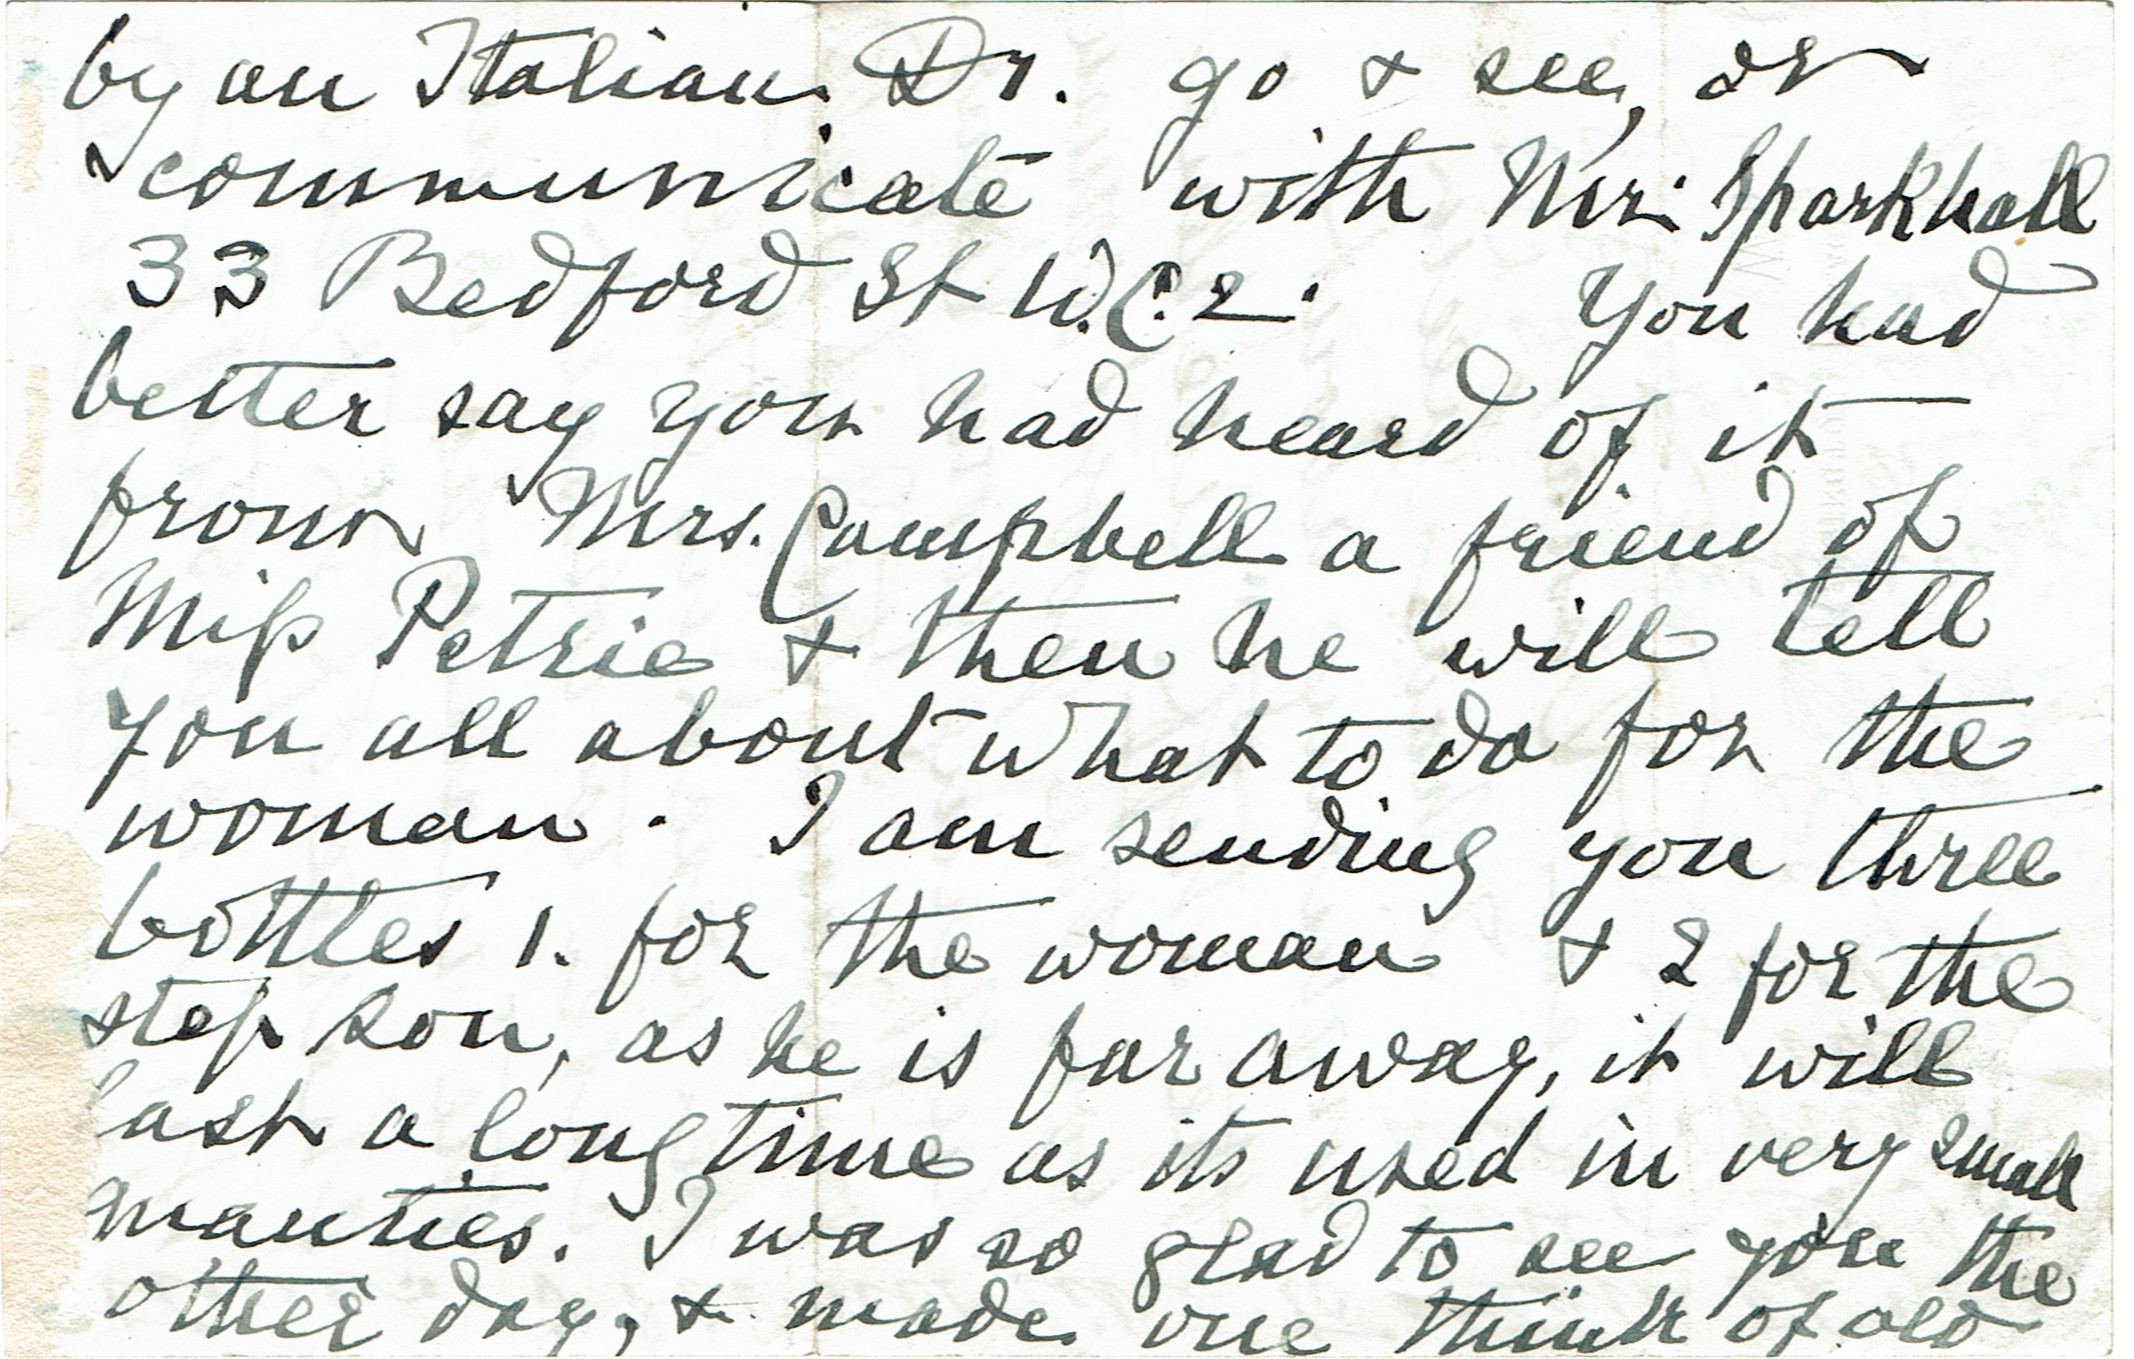 by an Italian Dr. go & see, or
communicate with Mr. Sparkhall
33 Bedford St W.C.2. You had
better say you had heard of it
from Mrs. Campbell a friend of
Miss Petrie & then he will tell
you all about what to do for the
woman. I am sending you three
bottles 1. for the woman & 2 for the
step son, as he is far away, it will
last a long time as its used in very small
quanties. I was so glad to see you the
other day, & made one think of old